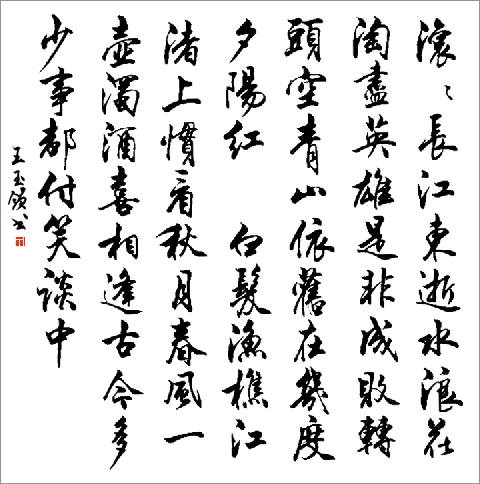 滾〻長江東逝水浪花
淘盡英雄是非成敗轉
頭空青山依舊在幾度
夕陽紅 白髮漁樵江
渚上慣看秋月春風一
壺濁酒喜相逢古今多
少事都付笑談中
王玉领书